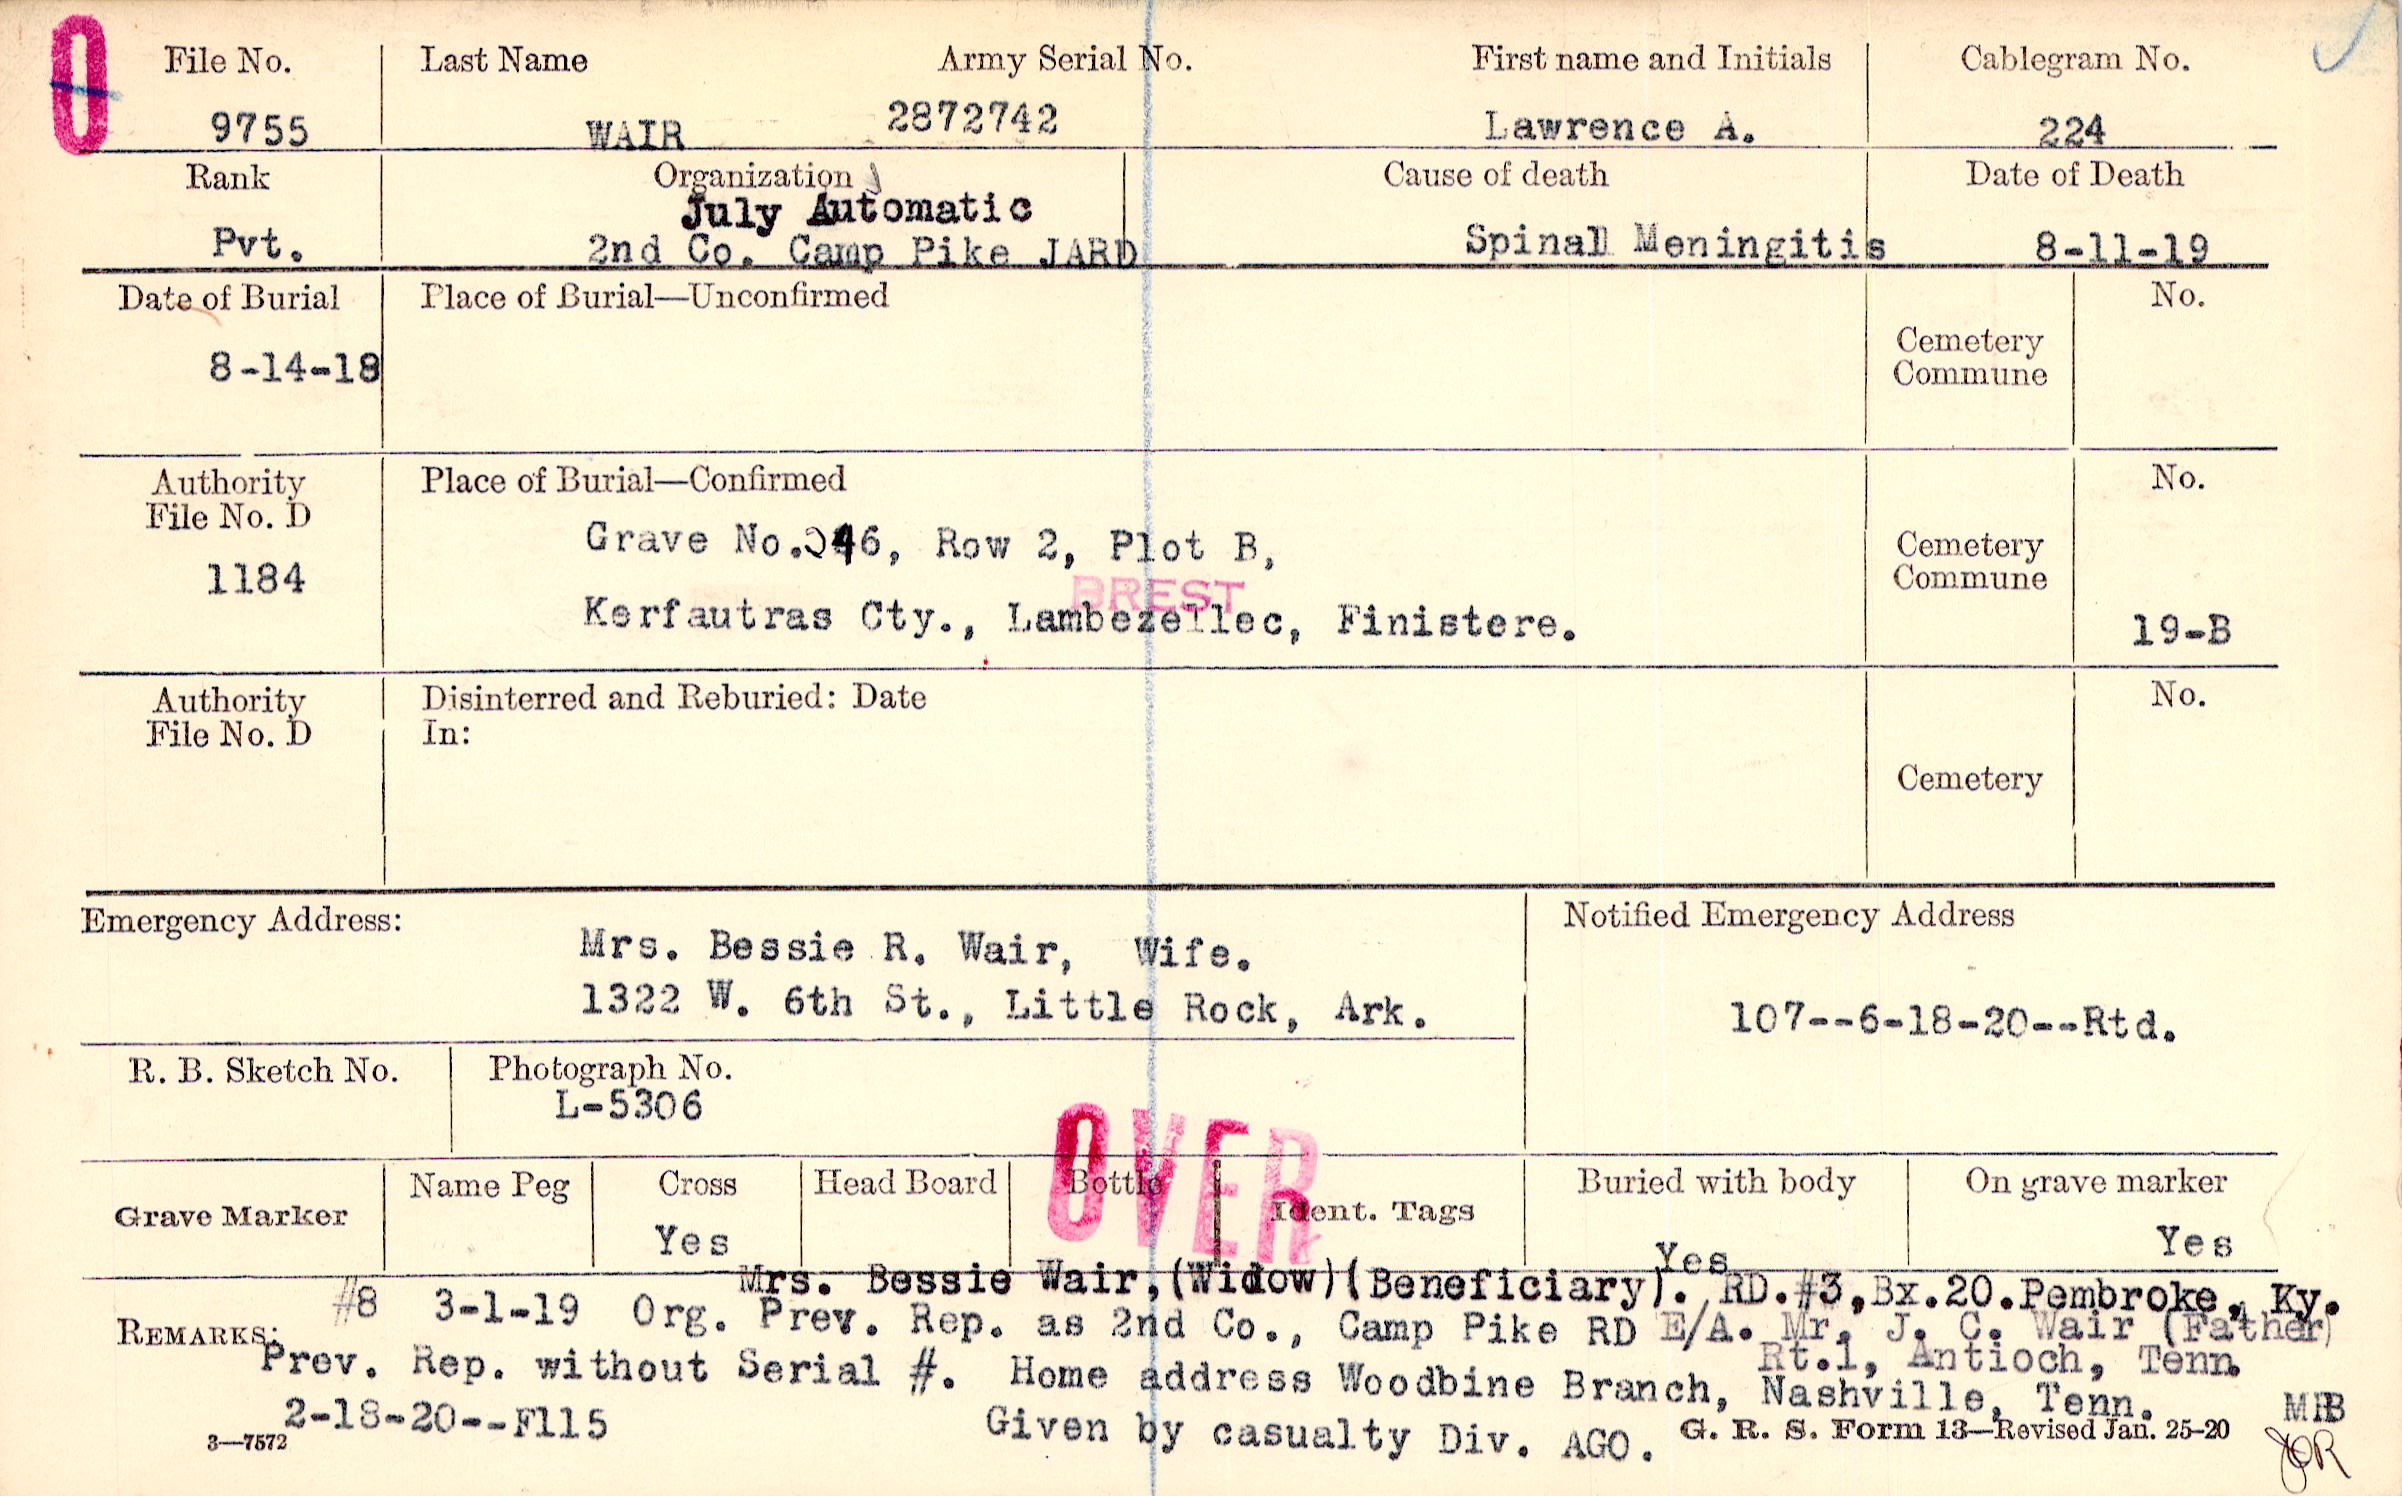 0
File No. Last Name Army Serial No. First name and Initials Cablegram No.
9755 WAIR 2872742 Lawrence A. 224
Rank Organization Cause of death Date of Death
July Automatic
Pvt. 2nd Co. Camp Pike JARD Spinal Meningitis 8-11-19
Date of Burial Place of Burial—Unconfirmed No.
8-14-18 Cemetery
Commune
Authority Place of Burial—Confirmed No.
File No. D
Grave No. 46, Row 2, Plot B, Cemetery
1184 Commune
BREST
Kerfautras Cty., Lambezellec, Finistere. 19-B
Authority Disinterred and Reburied: Date No.
File No. D In:
Cemetery
Emergency Address: Notified Emergency Address
Mrs. Bessie R. Wair, Wife.
1322 W. 6th St., Little Rock, Ark. 107--6-18-20--Rtd.
R. B. Sketch No. Photograph No.
L-5306
OVER
Grave Marker Name Peg Cross Head Board Bottle Ident. Tags Buried with body On grave marker
Yes Yes Yes
Mrs. Bessie Wair,(Widow)(Beneficiary). RD.#3,Bx.20.Pembroke, Ky.
REMARKS: #8 3-1-19 Org. Prev. Rep. as 2nd Co., Camp Pike RD E/A. Mr. J. C. Wair (Father)
Rt.1, Antioch, Tenn.
Prev. Rep. without Serial #. Home address Woodbine Branch, Nashville, Tenn.
2-18-20--F115 Given by casualty Div. AGO. MHB
3—7572 G. R. S. Form 13—Revised Jan. 25-20
JOR